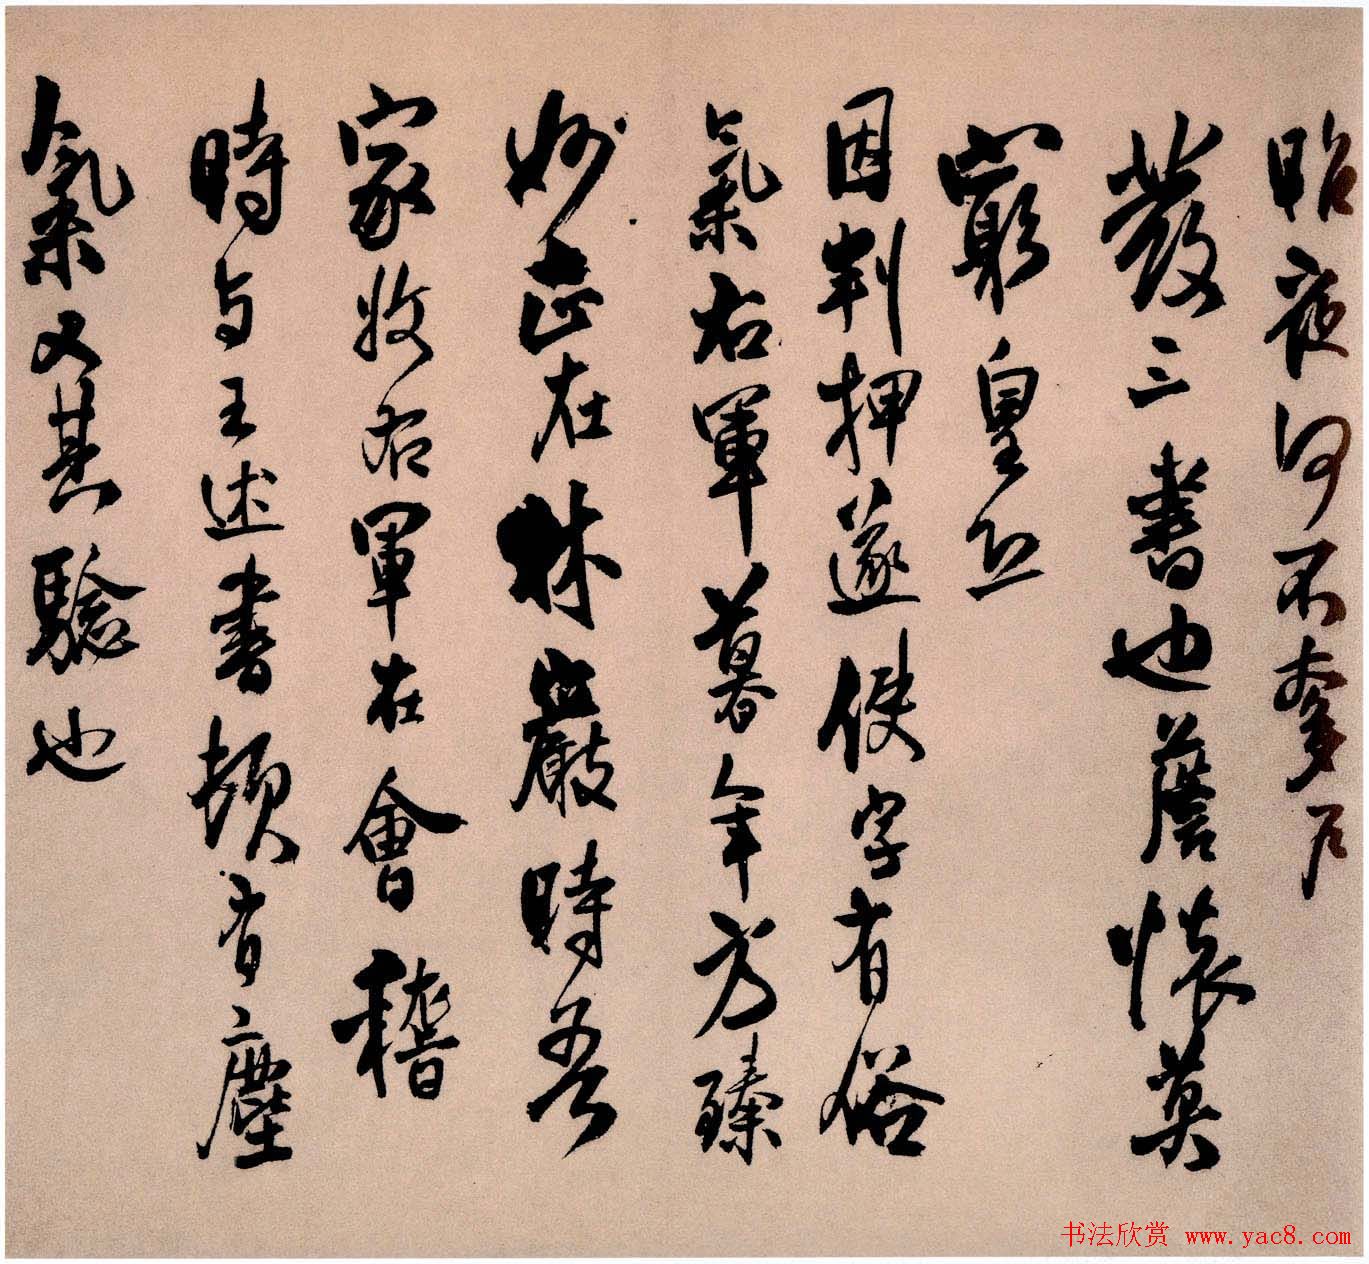 昭夜何不牽尺
發三書也詹懷莫
窮皇恐
因判押遂使字有俗
氣右軍暮年方臻
妙正在林巖時吾
家收右軍在會稽
時与王述書頓有塵
氣又其驗也
书法欣赏 www.yac8.com